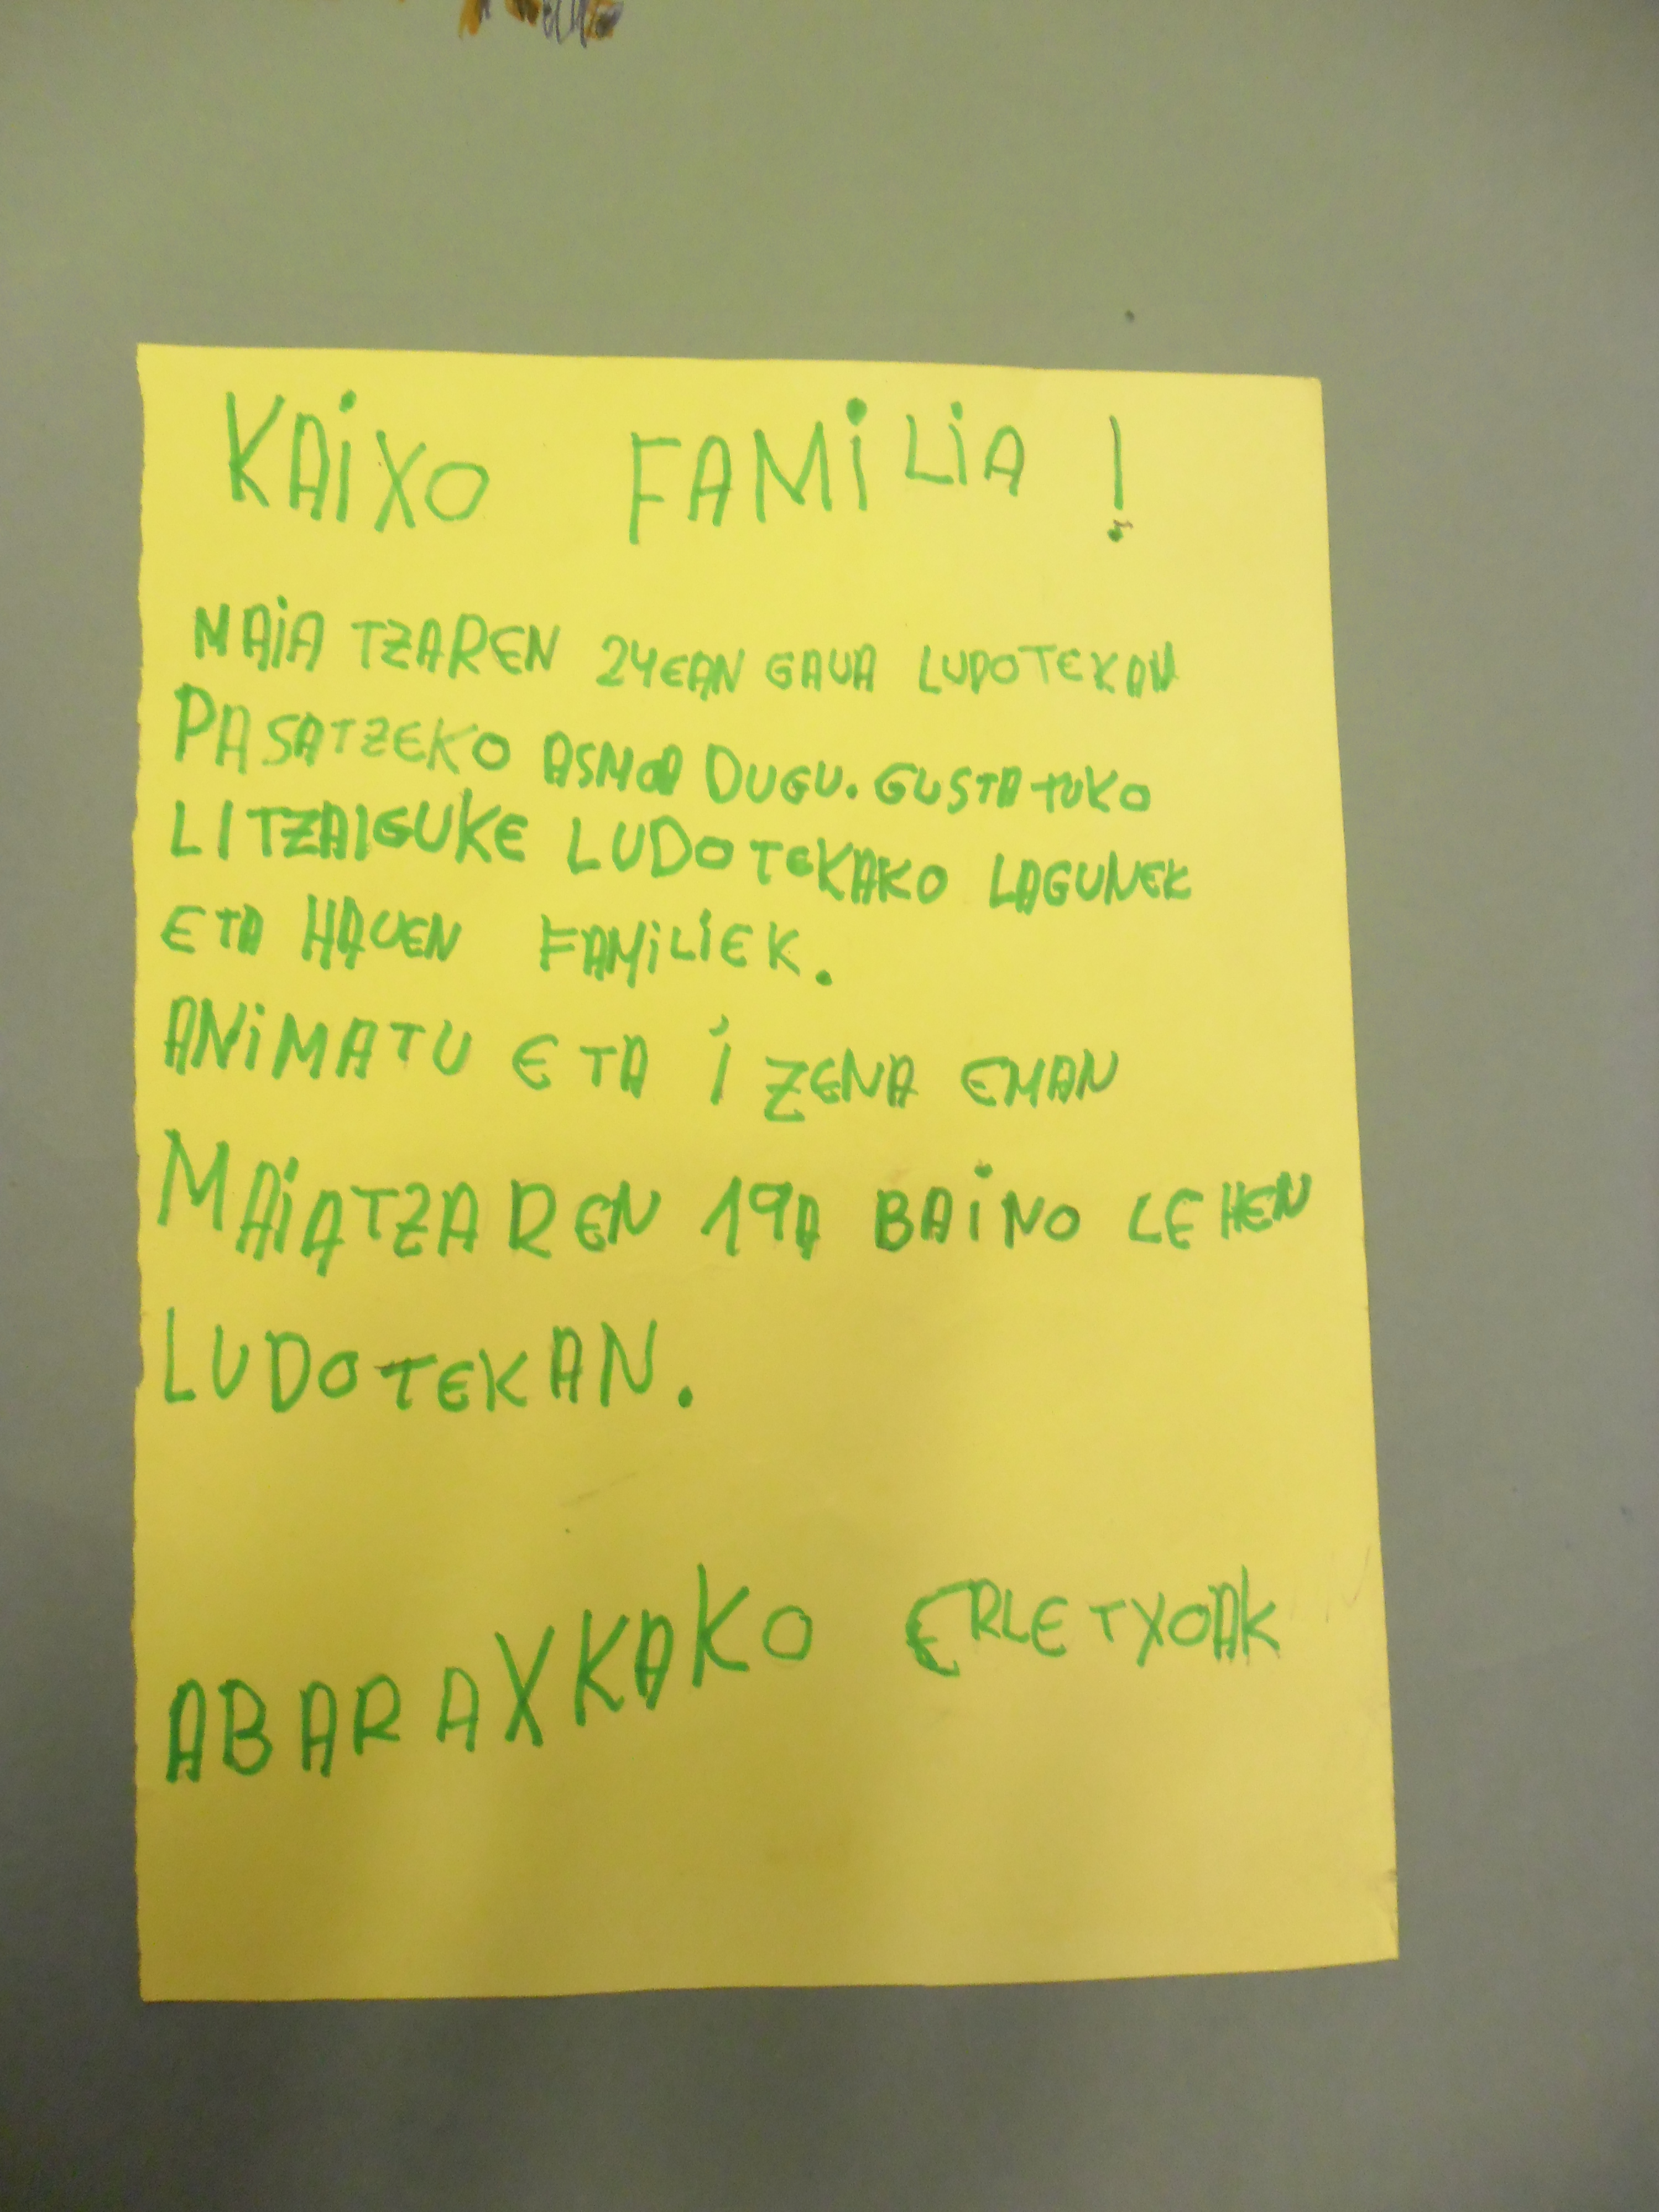 KAiXO FAMiLiA !
MAiATZAREN 24EAN GAUA LUDOTEKAN
PASATZEKO ASMOA DUGU. GUSTATUKO
LITZAIGUKE LUDOTEKAKO LAGUNEK
ETA HAUEN FAMiLiEK.
ANiMATU ETA iZENA EMAN
MAiATZAREN 19A BAiNO LEHEN
LUDOTEKAN.
ABARAXKAKO ERLETXOAK